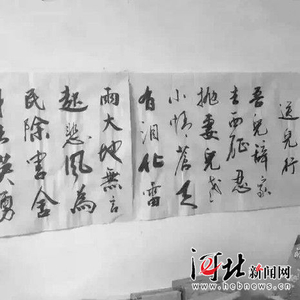 送兒行
吾兒辞家
去西征忍
抛妻兒
小情蒼天
有泪化雷
雨大地無言
起悲風為
民除害舍
英勇
河北新闻网
www.hebnews.cn